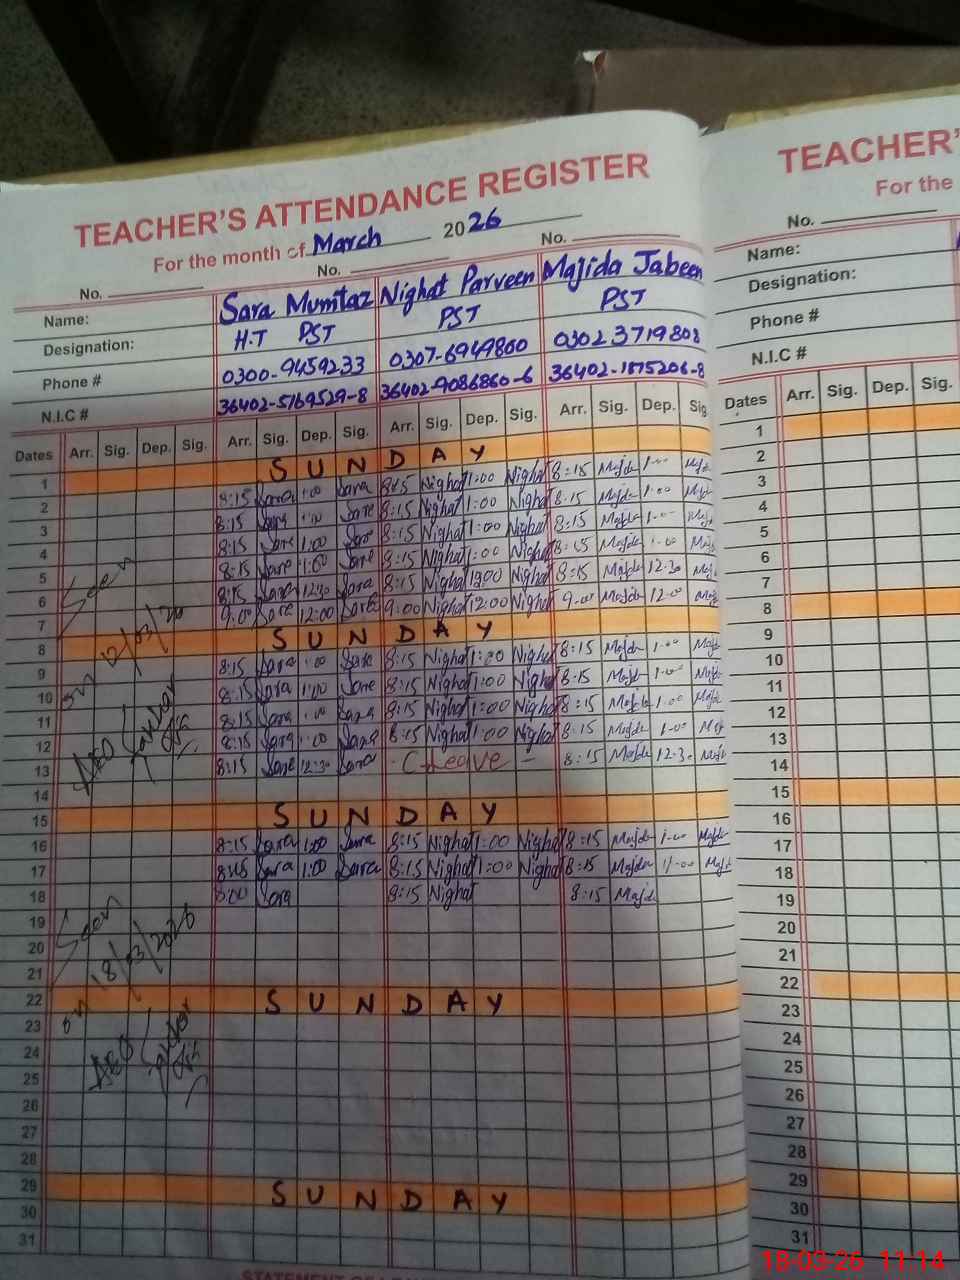 TEACHER'S ATTENDANCE REGISTER
For the month of March 2026
No. No. No.
Name: Sara Mumtaz Nighat Parveen Majida Jabeen
Designation: H.T PST PST PST
Phone # 0300-9459233 0307-6949860 0302 3719808
N.I.C # 36402-5169529-8 36402-9086860-6 36402-1875206-8
Dates Arr. Sig. Dep. Sig. Arr. Sig. Dep. Sig. Arr. Sig. Dep. Sig. Arr. Sig. Dep. Sig
1 SUNDAY
2 8:15 Sara 1:00 Sara 8:15 Nighat 1:00 Nighat 8:15 Majda 1-00
3 8:15 1:00 8:15 Nighat 1:00 Nighat 8:15 Majda 1-00
4 8:15 1:00 8:15 Nighat 1:00 Nighat 8:15 Majda 1-00
5 8:15 1:00 8:15 Nighat 1:00 Nighat 8:15 Majda 1-00
6 8:15 12:30 Sara 8:15 Nighat Nighat 8:15 Majda 12-30
7 9:00 12:00 9:00 Nighat 12:00 Nighat 9-00 Majda 12-00
8 SUNDAY
9 8:15 Sara 1:00 8:15 Nighat 1:00 Nighat 8:15 Majda 1-00
10 8:15 Sara 1:00 8:15 Nighat 1:00 Nighat 8:15 Majda 1-00
11 8:15 Sara 1:00 Sara 8:15 Nighat 1:00 Nighat 8:15 Majda 1-00
12 8:15 Sara 1:00 Sara 8:15 Nighat 1:00 Nighat 8:15 Majda 1-00
13 8:15 12:30 Sara C Leave 8:15 Majda 12-30
14
15 SUNDAY
16 8:15 Sara 1:00 Sara 8:15 Nighat 1:00 Nighat 8:15 Majda 1-00
17 8:15 Sara 1:00 Sara 8:15 Nighat 1:00 Nighat 8:15 Majda
18 8:00 Sara 8:15 Nighat 8:15 Majda
19
20
21
22 SUNDAY
23
24
25
26
27
28
29 SUNDAY
30
31
Seen
on 12/03/20
AEO
Seen
on 18/03/2026
AEO
TEACHER'
For the
No.
Name:
Designation:
Phone #
N.I.C #
Dates Arr. Sig. Dep. Sig.
1
2
3
4
5
6
7
8
9
10
11
12
13
14
15
16
17
18
19
20
21
22
23
24
25
26
27
28
29
30
31
18-03-26 11:14